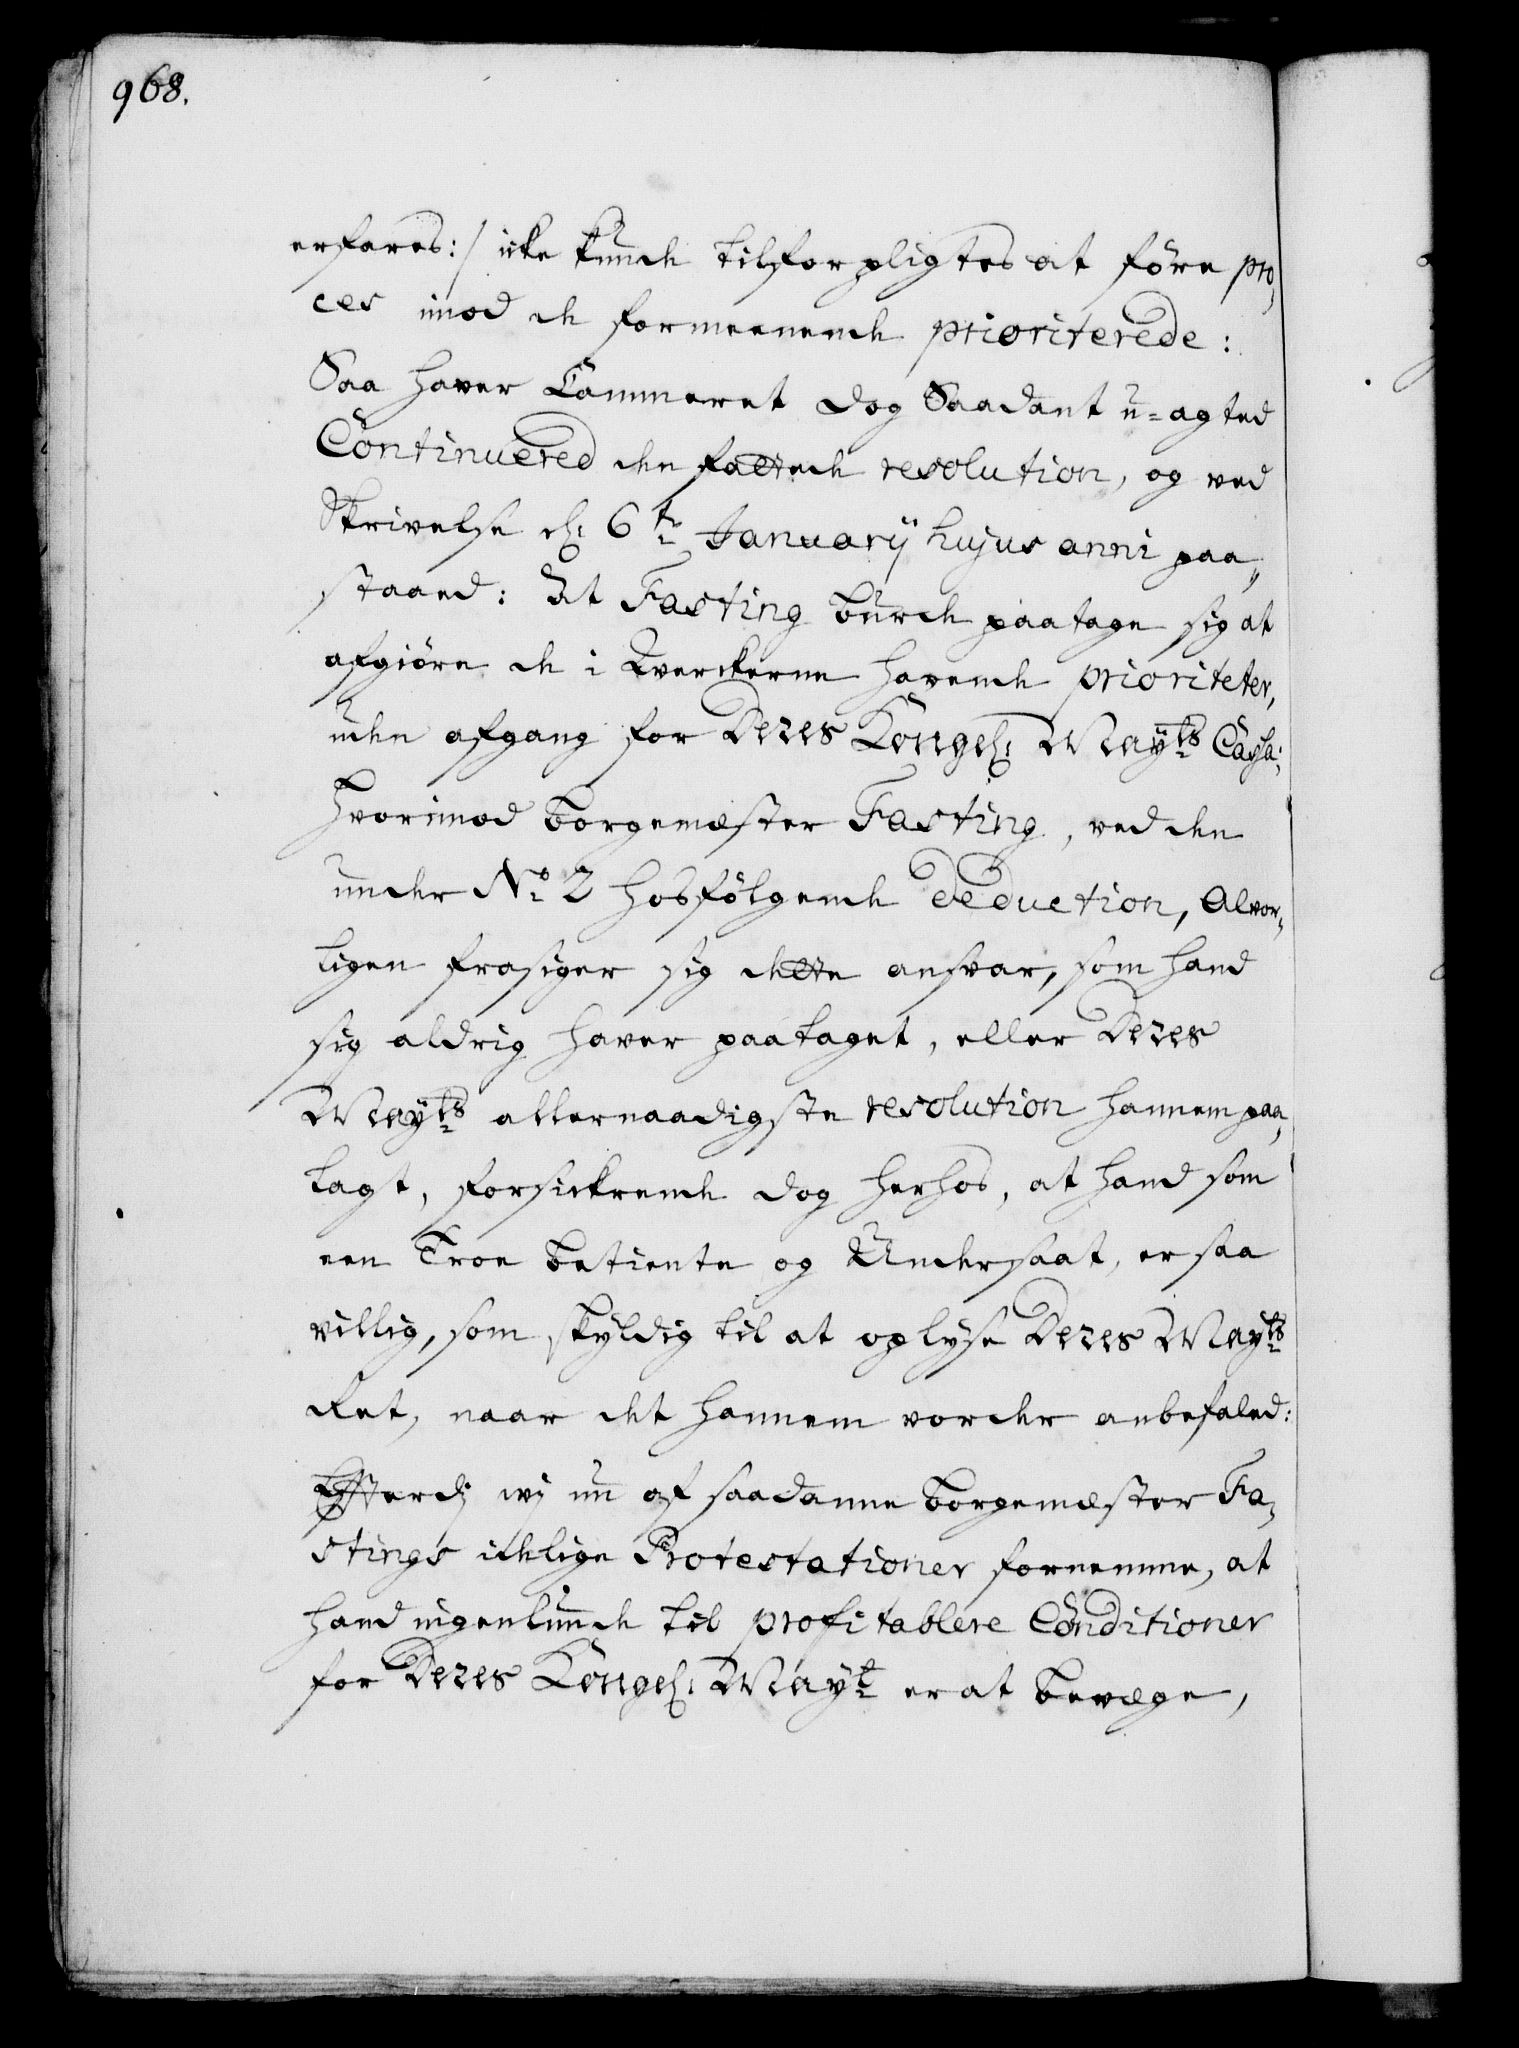 968.
erfares:/ icke kunde tilforpligtes at före pro,
ces imod de formeenende prioriterede:
Saa haver Cammeret dog Saadant u-agted
Continuered den fattede resolution, og ved
Skrivelse d: 6te Januarij hujus anni paa,,
staaed: At Fasting burde paatage sig at
afgiöre de i Kverckerne havende prioriteter,
uden afgang for Deres Kongel: Mayts Cassa:
Hvorimod Borgemester Fasting, ved den
under No 2 hosfölgende Deduction, Alvor,
ligen frasiger sig dette ansvar, som hand
sig aldrig haver paataget, eller Deres
Mayts allernaadigste resolution hannem paa,
lagt, forsickrende dog herhos, at hand som
een Troe betiente og Undersaat, er saa
villig, som skyldig til at oplyse Deres Mayts
Ret, naar det hannem vorder anbefaled:
Efterdj wj nu af saadanne Borgemester Fa,
stings idelige Protestationer fornemme, at
hand ingenlunde til profitablere Conditioner
for Deres Kongel: Mayt er at bevege,